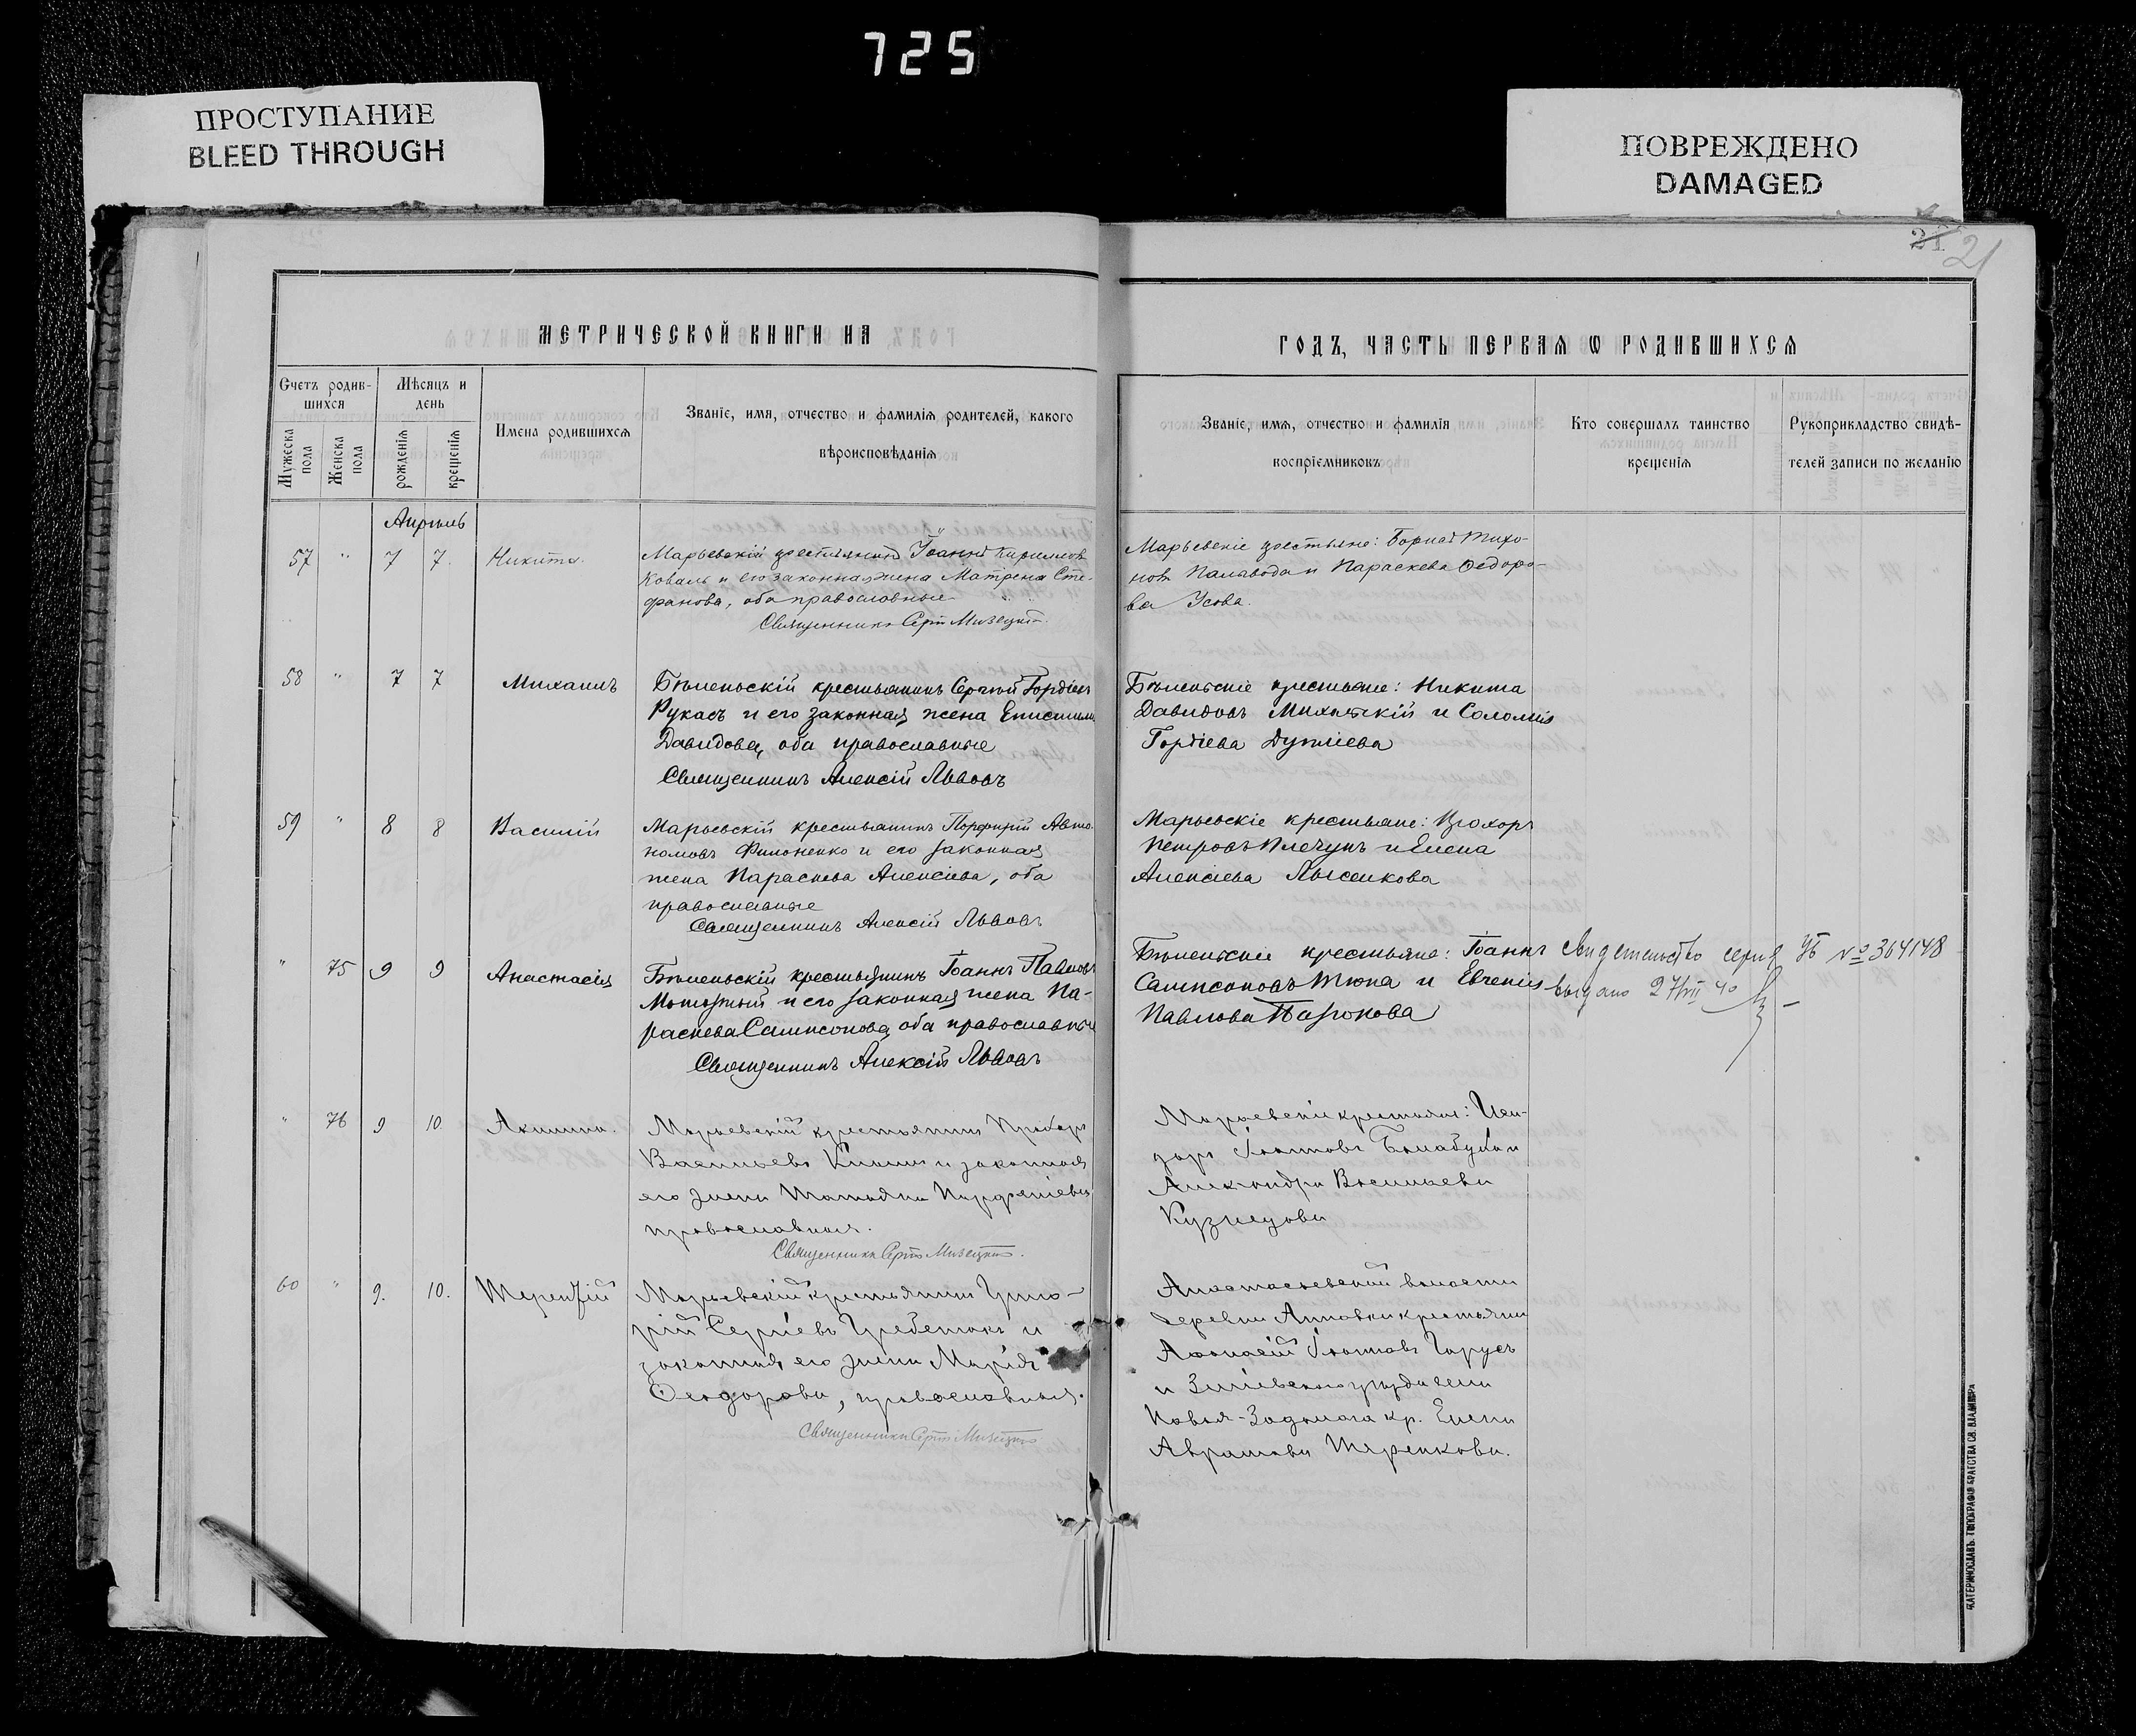 725
ПРОСТУПАНИЕ
BLEED THROUGH
ПОВРЕЖДЕНО
DAMAGED
21
21
МЕТРИЧЕСКОЙ КНИГИ НА
ГОДЪ, ЧАСТЬ ПЕРВАЯ Ѡ РОДИВШИХСЯ
Счетъ родив-
шихся
Мужеска
пола
Женска
пола
Мѣсяцъ и
день
рожденія
крещенія
Имена родившихся
Званіе, имя, отчество и фамилія родителей, какого
вѣроисповѣданія
Званіе, имя, отчество и фамилія
воспріемниковъ
Кто совершалъ таинство
крещенія
Рукоприкладство свидѣ-
телей записи по желанію
Апрѣль
57 " 7 7. Никита.
Марьевскій крестьянинъ Іоаннъ Кирилловъ
Коваль и его законная жена Матрена Сте-
фанова, оба православные
Священникъ Сергій
Марьевскіе крестьяне: Тихо-
новъ и Параскева Ѳедоро-
ва Усова.
58 " 7 7 Михаилъ
Бѣленьскій крестьянинъ Сергій Гордіевъ
Рукасъ и его законная жена
Давидова, оба православные
Священникъ Алексій Львовъ
Бѣленьскіе крестьяне: Никита
Давидовъ и Соломія
Гордіева
59 " 8 8 Василій
Марьевскій крестьянинъ Порфирій Авто-
номовъ Филоненко и его законная
жена Параскева Алексіева, оба
православные
Священникъ Алексій Львовъ
Марьевскіе крестьяне: Прохоръ
Петровъ Плечунъ и Елена
Алексіева Лысенкова
" 75 9 9 Анастасія
Бѣленьскій крестьянинъ Іоаннъ Павловъ
и его законная жена Па-
раскева Сампсонова, оба православные
Священникъ Алексій Львовъ
Бѣленьскіе крестьяне: Іоаннъ
Сампсоновъ Тюпа и Евгенія
Павлова
Свидетельство серия УБ № 364148
выдано 27/VII 40
" 76 9 10 Акилина.
Марьевскій крестьянинъ Прохоръ
Васильевъ и законная
его жена Татьяна
православные.
Священникъ Сергій
Марьевскіе крестьяне:
Іоанновъ и
Александра Васильева
Кузнецова
60 " 9. 10. Терентій
Марьевскій крестьянинъ Григо-
рій Сергіевъ Гребенюкъ и
законная его жена Марія
Ѳеодорова, православные.
Священникъ Сергій
волости
деревни Анновки крестьянинъ
Аѳанасій Іоанновъ
и Зміевского уѣзда села
кр. Елена
Абрамова Теренкова.
ЕКАТЕРИНОСЛАВЪ. ТИПОГРАФІЯ БРАТСТВА СВ. ВЛАДИМІРА